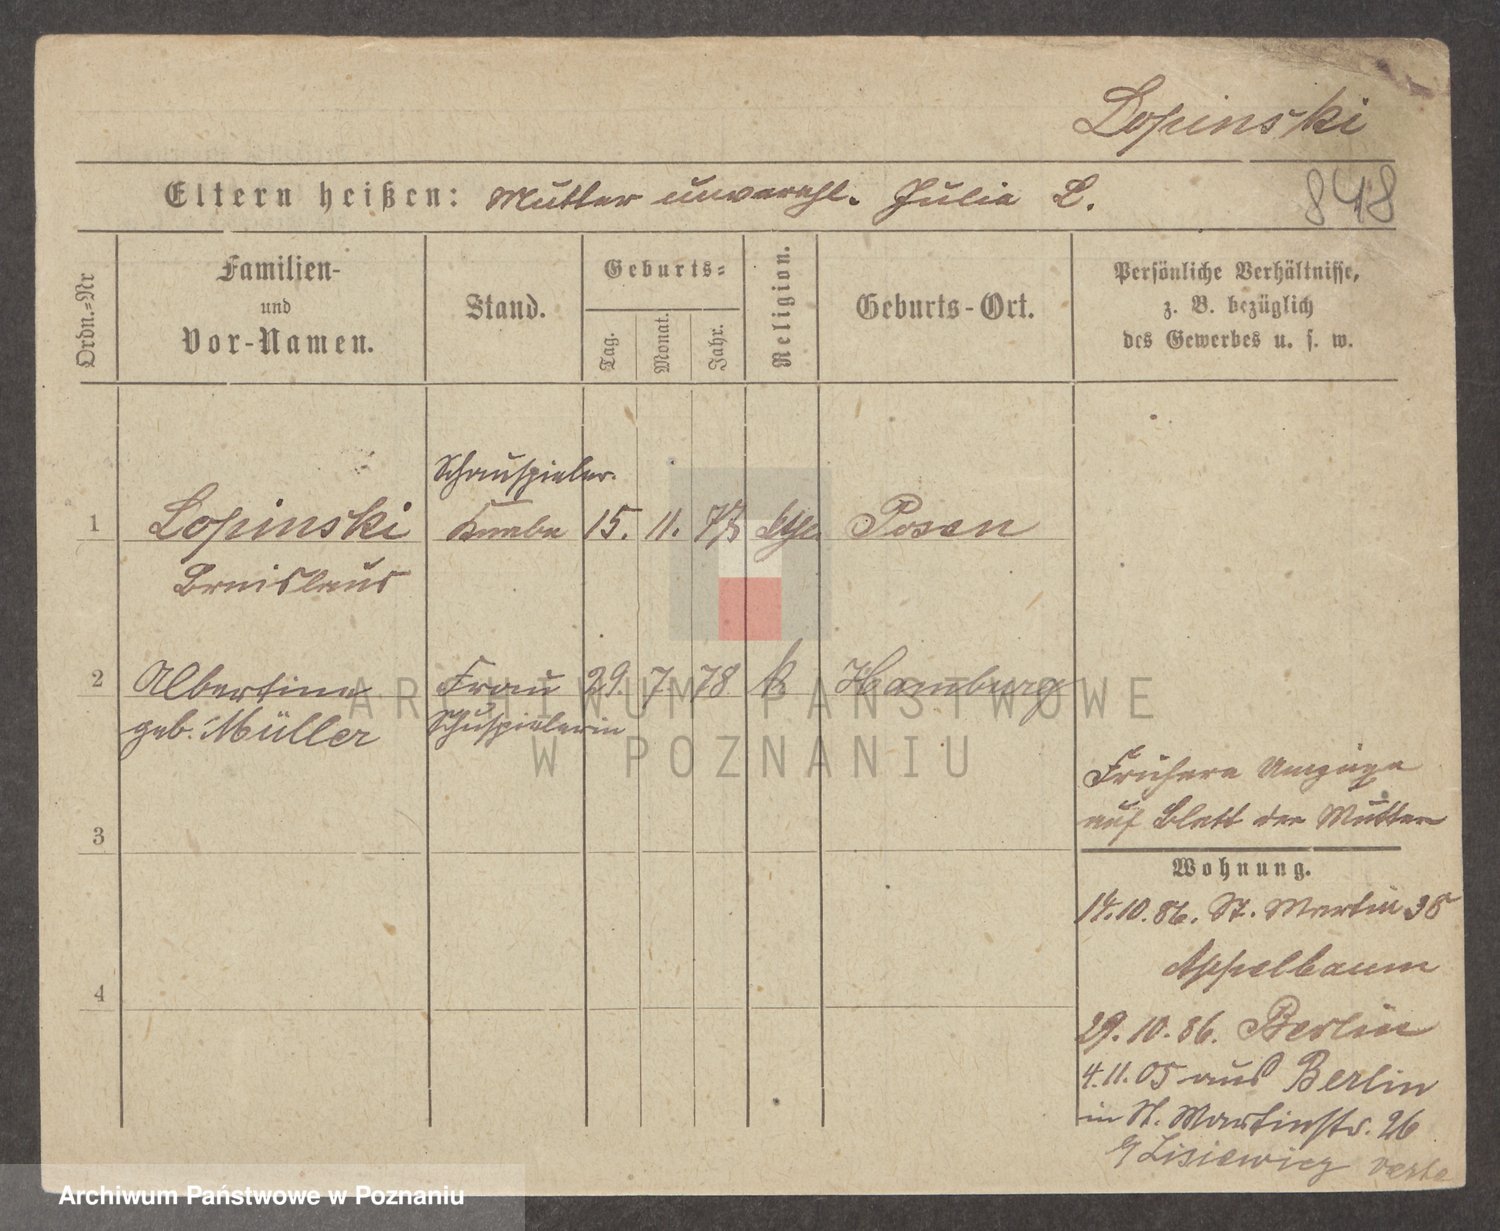 Lopinski
848
Eltern heißen: Mutter unverehl. Julia L.
Ordn.-Nr
Familien-
und
Vor-Namen.
Stand.
Geburts-
Tag.
Monat.
Jahr.
Religion.
Geburts-Ort.
Persönliche Verhältnisse,
z. B. bezüglich
des Gewerbes u. s. w.
Schauspieler.
1 Lopinski Knabe 15. 11. Posen
2 Albertine Frau 29. 7. 78 k Hamburg
geb. Müller
ARCHIWUM PAŃSTWOWE
W POZNANIU
Frühere Umzüge
auf Blatt der Mutter
3
Wohnung.
14.10.86. St. Martin 38
Appelbaum
4
29.10.86. Berlin
4.11.05 aus Berlin
in St. Martinstr. 26
Archiwum Państwowe w Poznaniu